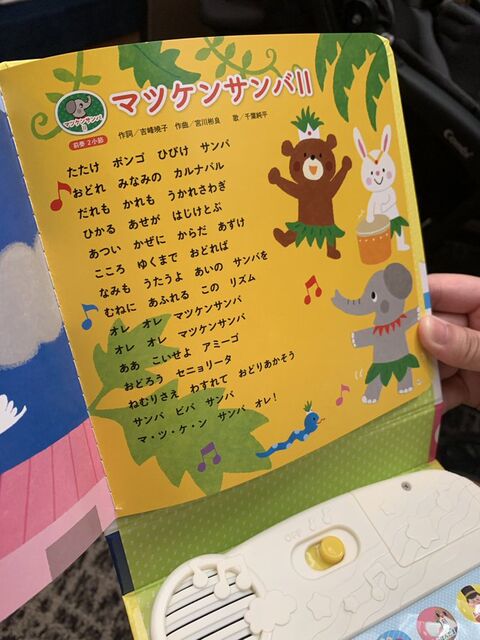 マツケンサンバII
マツケンサンバ
II
前奏 2小節
作詞/吉峰暁子 作曲/宮川彬良 歌/千葉純平
たたけ ボンゴ ひびけ サンバ
おどれ みなみの カルナバル
だれも かれも うかれさわぎ
ひかる あせが はじけとぶ
あつい かぜに からだ あずけ
こころ ゆくまで おどれば
なみも うたうよ あいの サンバを
むねに あふれる この リズム
オレ オレ マツケンサンバ
オレ オレ マツケンサンバ
ああ こいせよ アミーゴ
おどろう セニョリータ
ねむりさえ わすれて おどりあかそう
サンバ ビバ サンバ
マ・ツ・ケ・ン サンバ オレ!
OFF